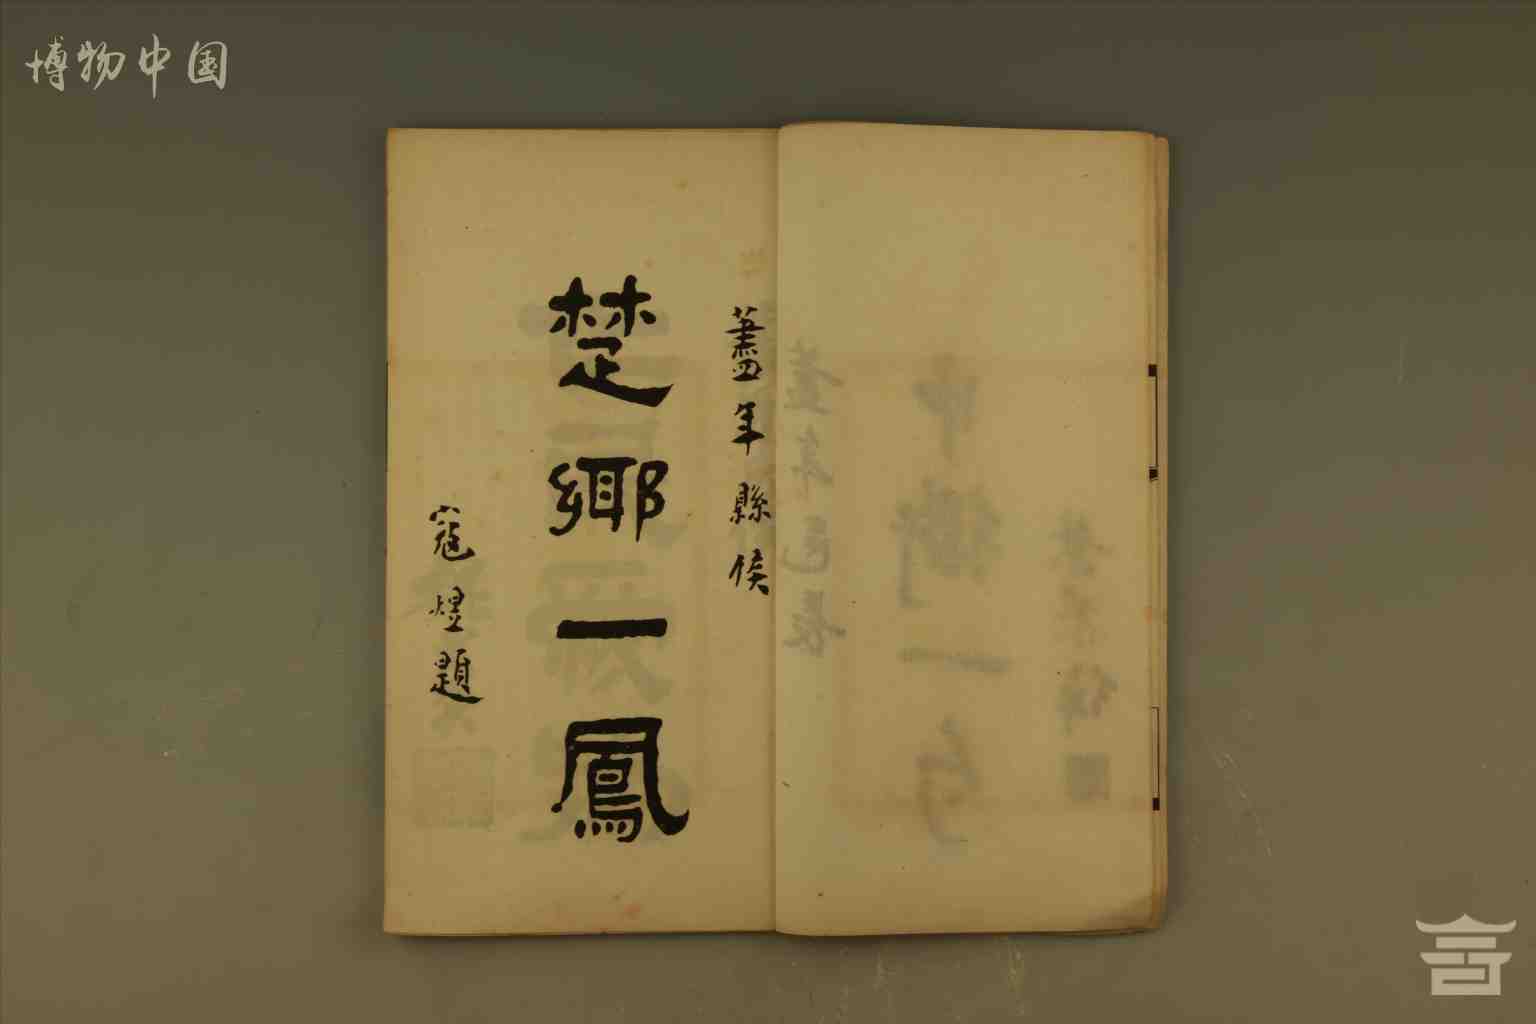 博物中国
藎年縣侯
楚鄉一鳳
寇煜題